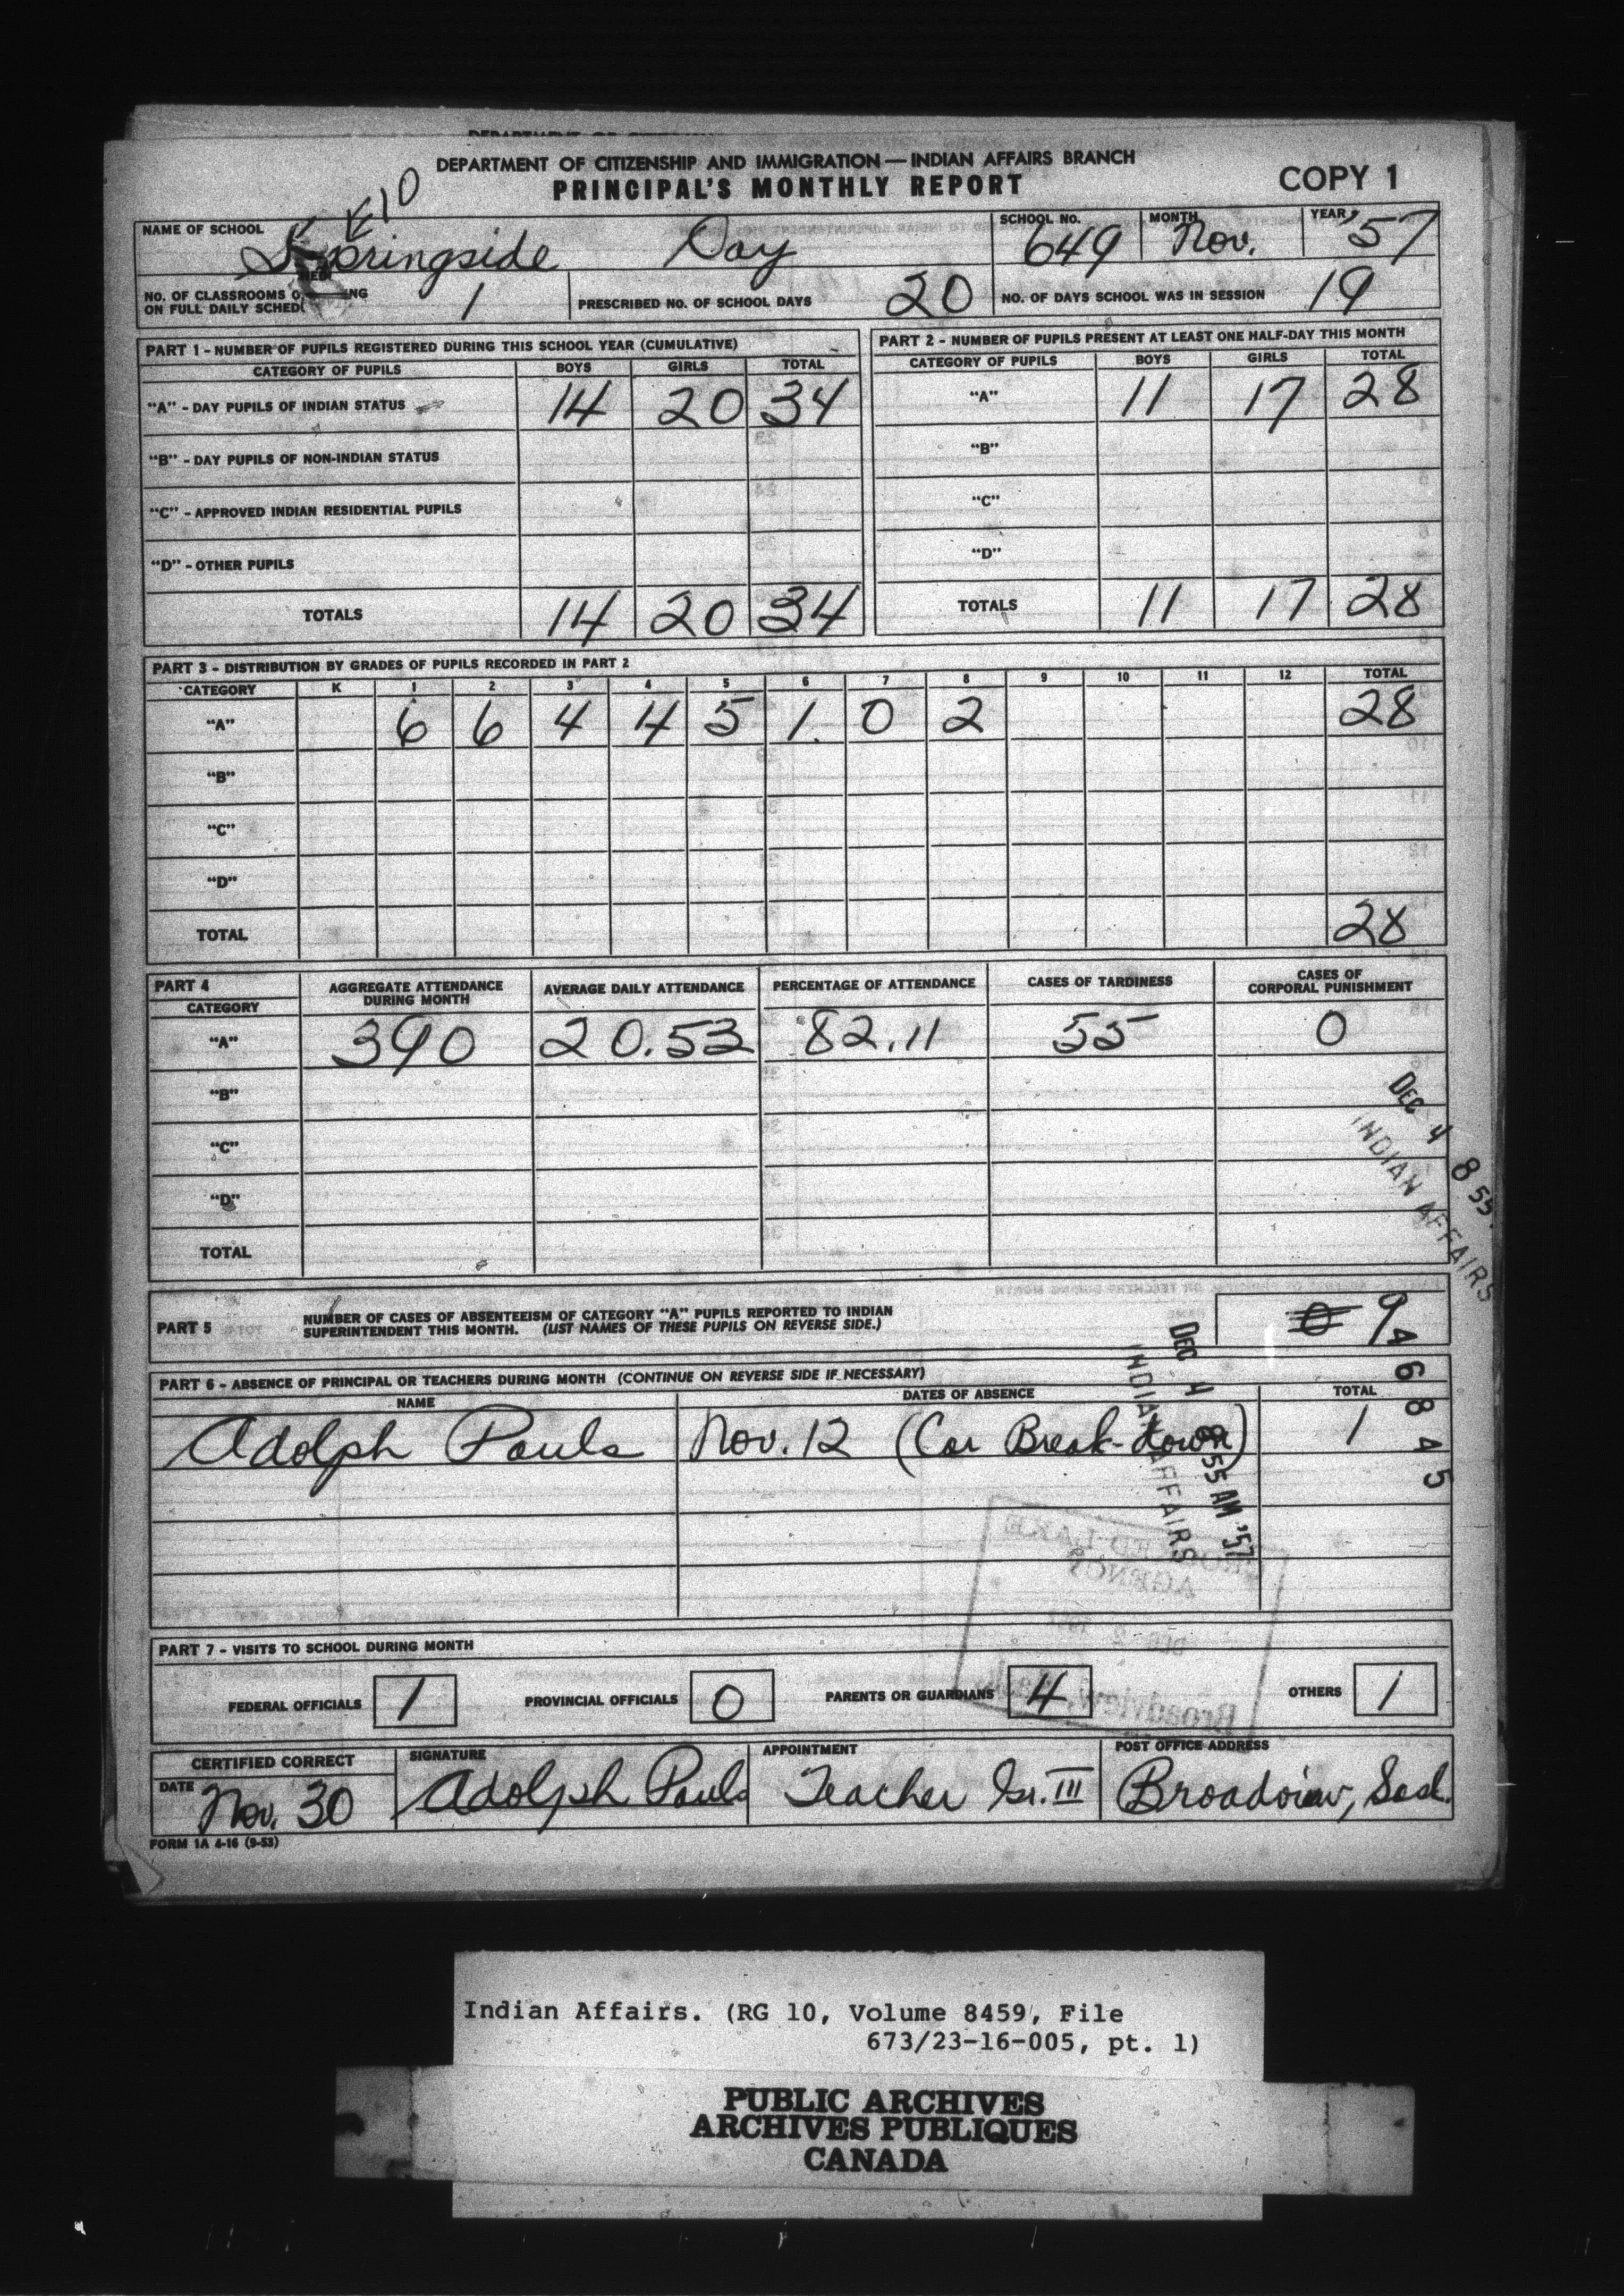 DEPARTMENT OF CITIZENSHIP AND IMMIGRATION — INDIAN AFFAIRS BRANCH
PRINCIPAL'S MONTHLY REPORT
COPY 1
10
NAME OF SCHOOL Springside Day SCHOOL NO. 649 MONTH Nov. YEAR '57
NO. OF CLASSROOMS NG ON FULL DAILY SCHED 1 PRESCRIBED NO. OF SCHOOL DAYS 20 NO. OF DAYS SCHOOL WAS IN SESSION 19
PART 1 - NUMBER OF PUPILS REGISTERED DURING THIS SCHOOL YEAR (CUMULATIVE)
CATEGORY OF PUPILS BOYS GIRLS TOTAL
"A" - DAY PUPILS OF INDIAN STATUS 14 20 34
"B" - DAY PUPILS OF NON-INDIAN STATUS
"C" - APPROVED INDIAN RESIDENTIAL PUPILS
"D" - OTHER PUPILS
TOTALS 14 20 34
PART 2 - NUMBER OF PUPILS PRESENT AT LEAST ONE HALF-DAY THIS MONTH
CATEGORY OF PUPILS BOYS GIRLS TOTAL
"A" 11 17 28
"B"
"C"
"D"
TOTALS 11 17 28
PART 3 - DISTRIBUTION BY GRADES OF PUPILS RECORDED IN PART 2
CATEGORY K 1 2 3 4 5 6 7 8 9 10 11 12 TOTAL
"A" 6 6 4 4 5 1 0 2 28
"B"
"C"
"D"
TOTAL 28
PART 4
CATEGORY AGGREGATE ATTENDANCE DURING MONTH AVERAGE DAILY ATTENDANCE PERCENTAGE OF ATTENDANCE CASES OF TARDINESS CASES OF CORPORAL PUNISHMENT
"A" 390 20.53 82.11 55 0
"B"
"C"
"D"
TOTAL
DEC 4 8 55
INDIAN AFFAIRS
PART 5 NUMBER OF CASES OF ABSENTEEISM OF CATEGORY "A" PUPILS REPORTED TO INDIAN
SUPERINTENDENT THIS MONTH. (LIST NAMES OF THESE PUPILS ON REVERSE SIDE.)
0 9
46845
PART 6 - ABSENCE OF PRINCIPAL OR TEACHERS DURING MONTH (CONTINUE ON REVERSE SIDE IF NECESSARY)
NAME DATES OF ABSENCE TOTAL
Adolph Pauls Nov. 12 (Car Break-down) 1
DEC 4 8 55 AM '57
INDIAN AFFAIRS
PART 7 - VISITS TO SCHOOL DURING MONTH
FEDERAL OFFICIALS 1 PROVINCIAL OFFICIALS 0 PARENTS OR GUARDIANS 4 OTHERS 1
CERTIFIED CORRECT SIGNATURE APPOINTMENT POST OFFICE ADDRESS
DATE Nov. 30 Adolph Pauls Teacher Gr. III Broadview, Sask.
FORM 1A 4-16 (9-53)
Indian Affairs. (RG 10, Volume 8459, File
673/23-16-005, pt. 1)
PUBLIC ARCHIVES
ARCHIVES PUBLIQUES
CANADA